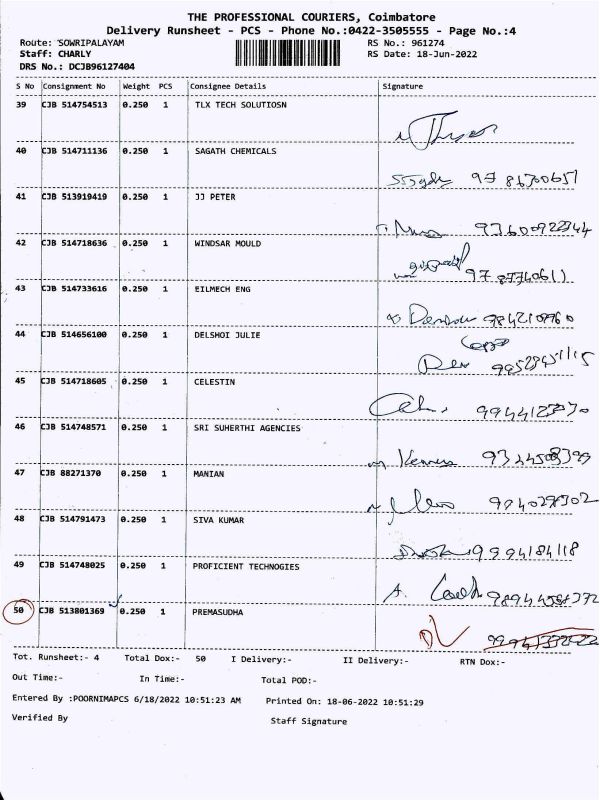 THE PROFESSIONAL COURIERS, Coimbatore
Delivery Runsheet - PCS - Phone No.:0422-3505555 - Page No.:4
Route: SOWRIPALAYAM RS No.: 961274
Staff: CHARLY RS Date: 18-Jun-2022
DRS No.: DCJB96127404
S No Consignment No Weight PCS Consignee Details Signature
39 CJB 514754513 0.250 1 TLX TECH SOLUTIOSN
40 CJB 514711136 0.250 1 SAGATH CHEMICALS
41 CJB 513919419 0.250 1 JJ PETER
42 CJB 514718636 0.250 1 WINDSAR MOULD
43 CJB 514733616 0.250 1 EILMECH ENG
44 CJB 514656100 0.250 1 DELSHOI JULIE
45 CJB 514718605 0.250 1 CELESTIN
46 CJB 514748571 0.250 1 SRI SUHERTHI AGENCIES
47 CJB 88271370 0.250 1 MANIAN
48 CJB 514791473 0.250 1 SIVA KUMAR
9994184118
49 CJB 514748025 0.250 1 PROFICIENT TECHNOGIES
50 CJB 513801369 0.250 1 PREMASUDHA
Tot. Runsheet:- 4 Total Dox:- 50 I Delivery:- II Delivery:- RTN Dox:-
Out Time:- In Time:- Total POD:-
Entered By :POORNIMAPCS 6/18/2022 10:51:23 AM Printed On: 18-06-2022 10:51:29
Verified By Staff Signature